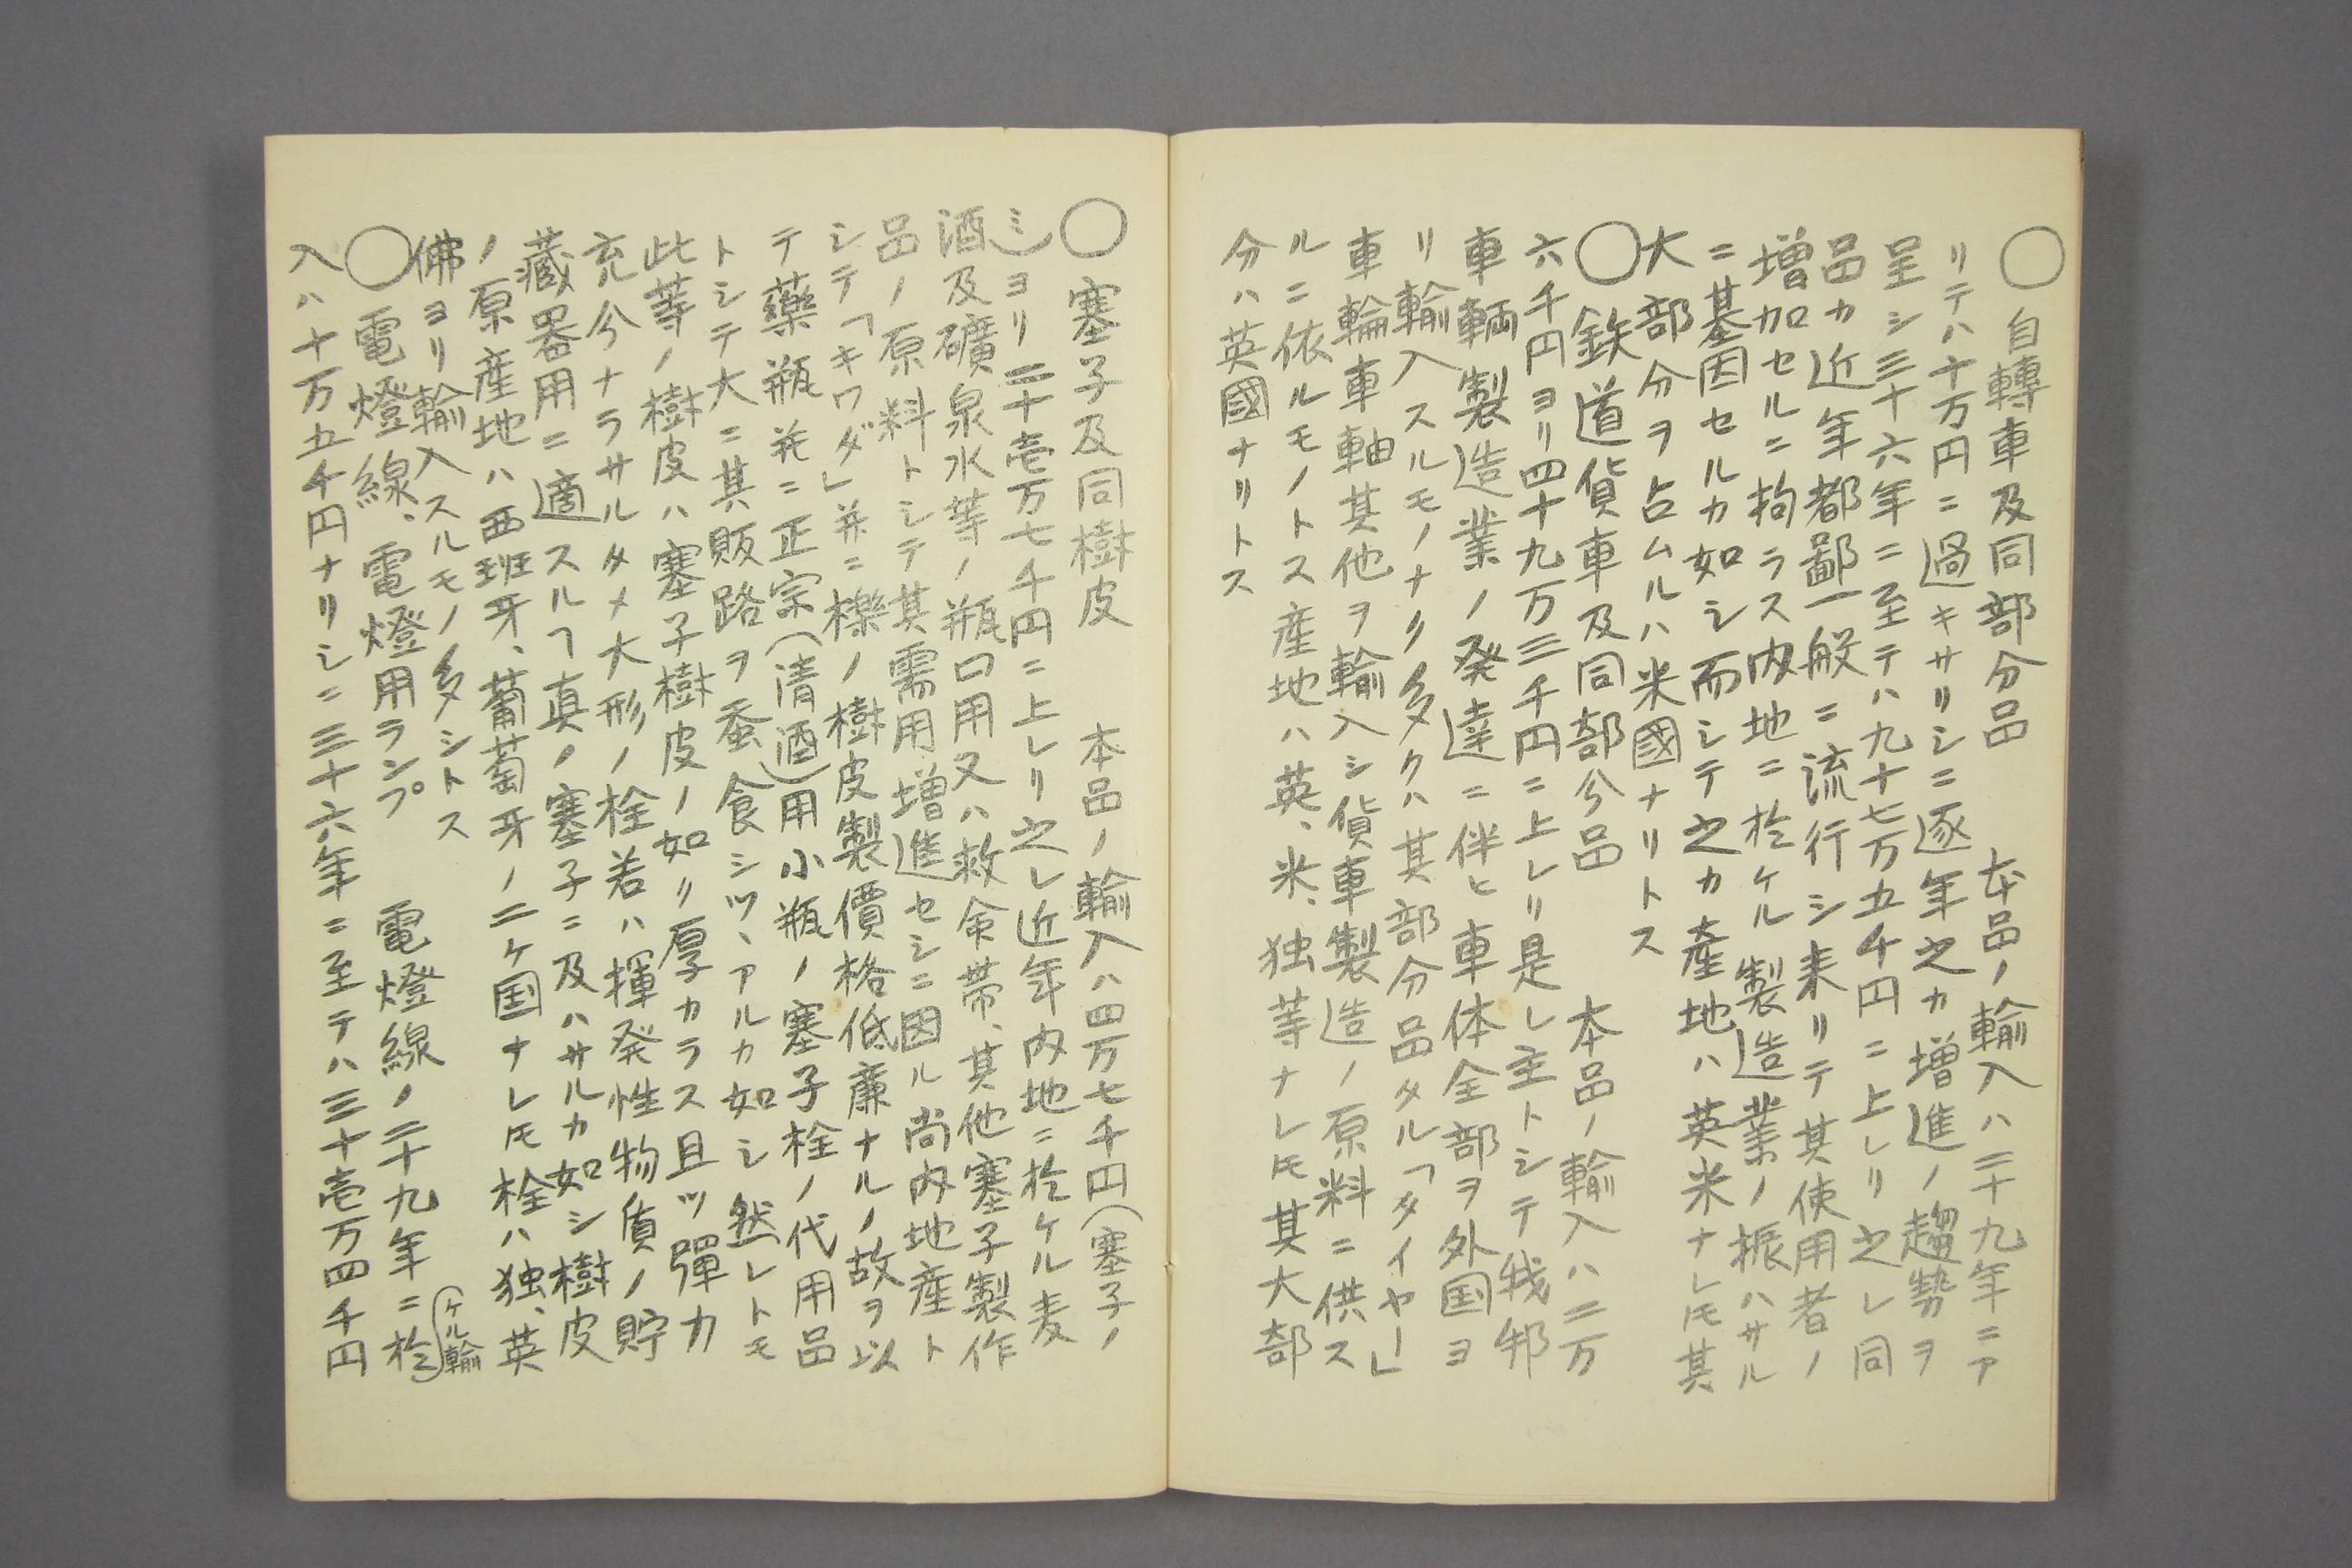 ○自轉車及同部分品　本品ノ輸入ハ二十九年ニア
リテハ十万円ニ過キサリシニ逐年之カ増進ノ趨勢ヲ
呈シ三十六年ニ至テハ九十七万五千円ニ上レリ之レ同
品カ近年都鄙一般ニ流行シ来リテ其使用者ノ
増加セルニ拘ラス内地ニ於ケル製造業ノ振ハサル
ニ基因セルカ如シ而シテ之カ産地ハ英米ナレ𪜈其
大部分ヲ占ムルハ米國ナリトス
○鉄道貨車及同部分品　本品ノ輸入ハ二万
六千円ヨリ四十九万三千円ニ上レリ是レ主トシテ我邦
車輌製造業ノ発達ニ伴ヒ車体全部ヲ外国ヨ
リ輸入スルモノナク多クハ其部分品タル「タイヤー」
車輪車軸其他ヲ輸入シ貨車製造ノ原料ニ供ス
ルニ依ルモノトス産地ハ英、米、独等ナレ𪜈其大部
分ハ英國ナリトス
○塞子及同樹皮　本品ノ輸入ハ四万七千円（塞子ノ
ミ）ヨリ二十壱万七千円ニ上レリ之レ近年内地ニ於ケル麦
酒及礦泉水等ノ瓶口用又ハ救命帯、其他塞子製作
品ノ原料トシテ其需用増進セシニ因ル尚内地産ト
シテ「キワダ」并ニ櫟ノ樹皮製價格低廉ナルノ故ヲ以
テ藥瓶并ニ正宗（清酒）用小瓶ノ塞子栓ノ代用品
トシテ大ニ其販路ヲ蚕食シツヽアルカ如シ然レトモ
此等ノ樹皮ハ塞子樹皮ノ如ク厚カラス且ツ彈力
充分ナラサルタメ大形ノ栓若ハ揮発性物質ノ貯
藏器用ニ適スルヿ真ノ塞子ニ及ハサルカ如シ樹皮
ノ原産地ハ西班牙、葡萄牙ノ二ヶ国ナレ𪜈栓ハ独、英
佛ヨリ輸入スルモノ多シトス
○電燈線、電燈用ランプ　電燈線ノ二十九年ニ於
（ケル輸）
入ハ十万五千円ナリシニ三十六年ニ至テハ三十壱万四千円